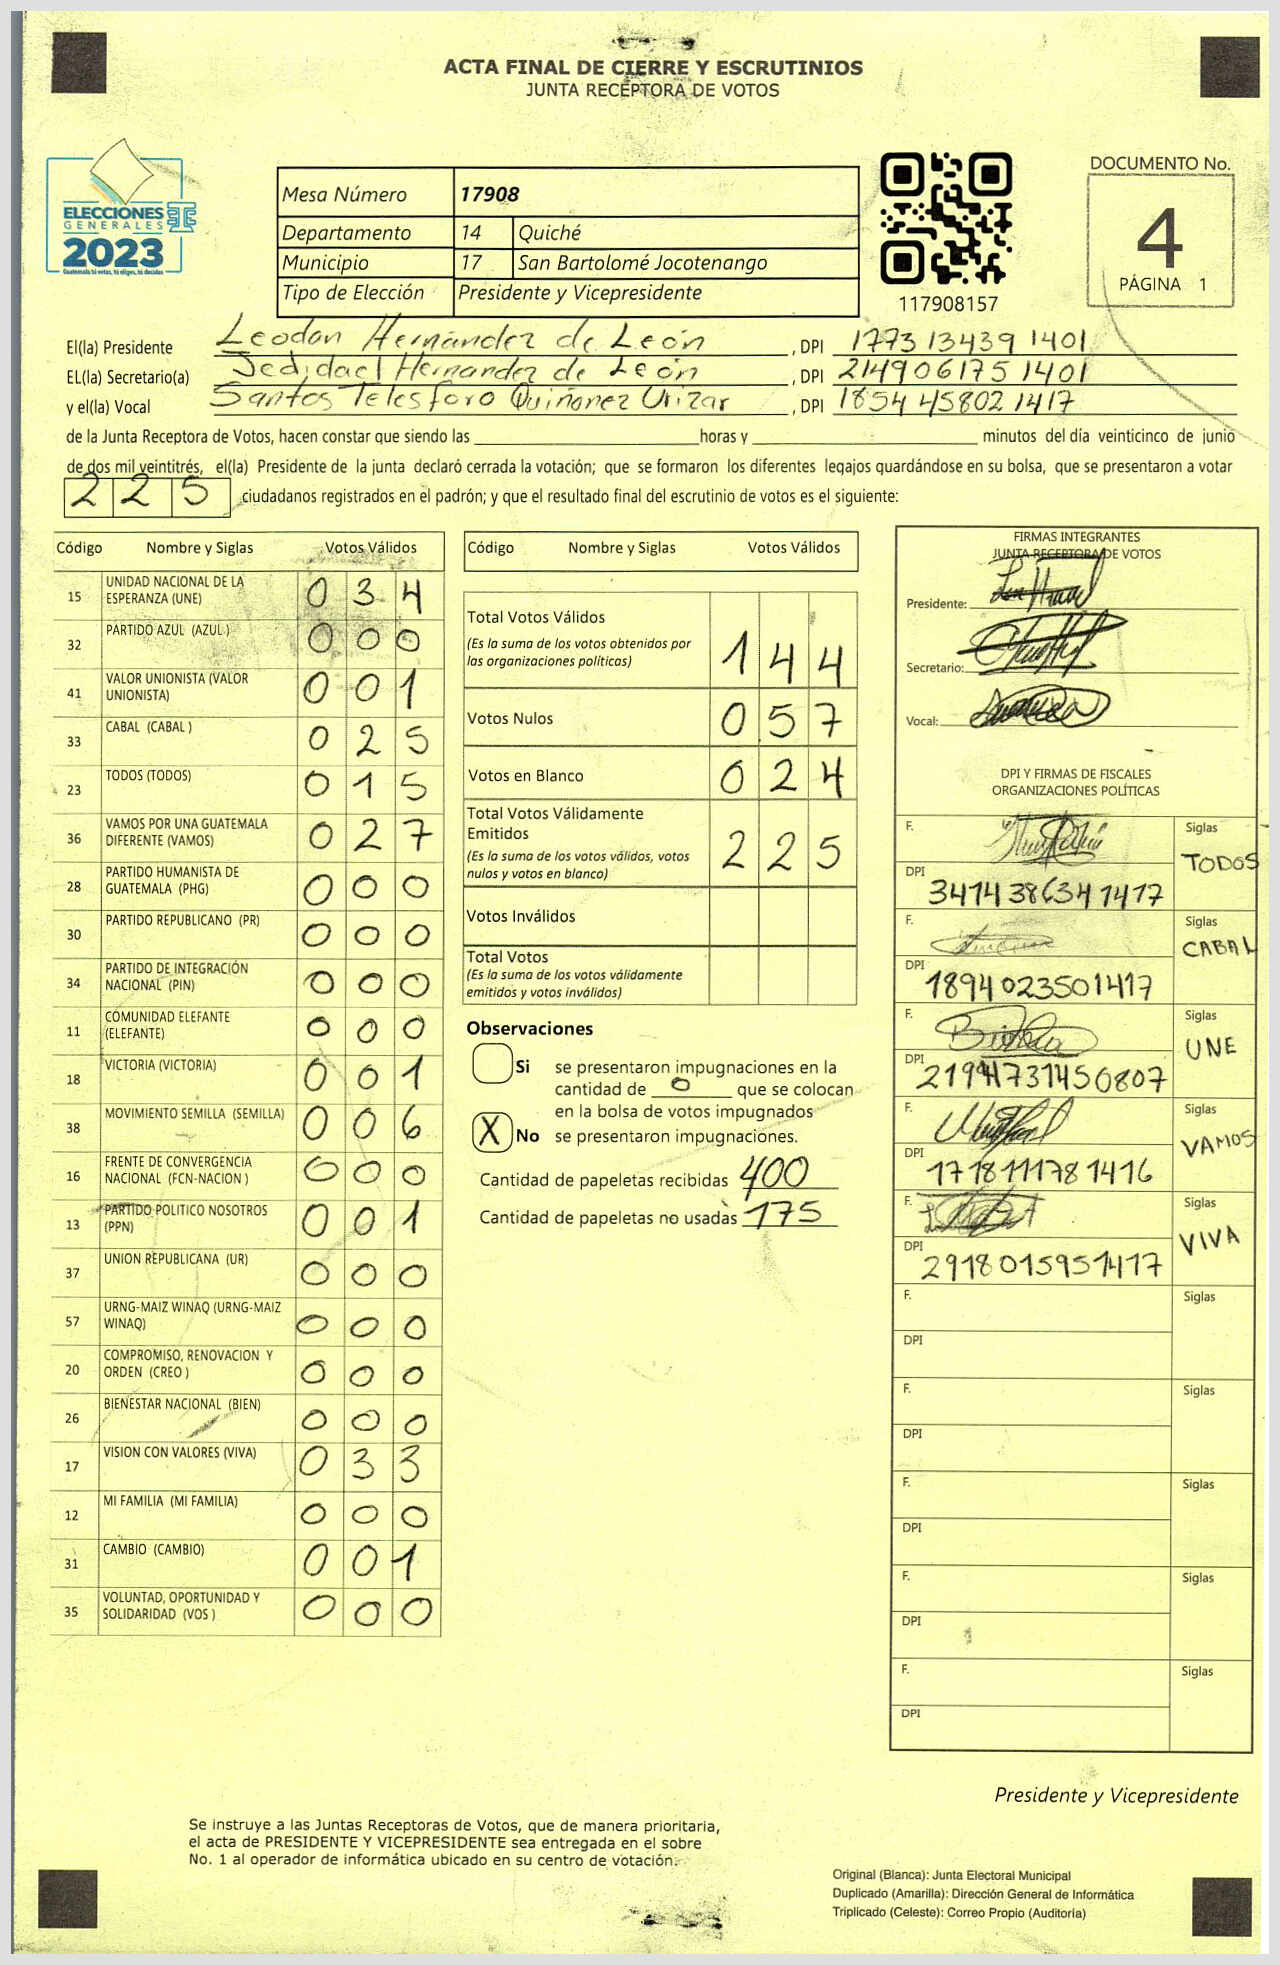 ACTA FINAL DE CIERRE Y ESCRUTINIOS
JUNTA RECEPTORA DE VOTOS
ELECCIONES
GENERALES
2023
Guatemala tú votas, tú eliges, tú decides
Mesa Número 17908
Departamento 14 Quiché
Municipio 17 San Bartolomé Jocotenango
Tipo de Elección Presidente y Vicepresidente
117908157
DOCUMENTO No.
4
PÁGINA 1
El(la) Presidente Leodan Hernández de León , DPI 1773 13439 1401
EL(la) Secretario(a) Jedidael Hernandez de León , DPI 214906175 1401
y el(la) Vocal Santos Telesforo Quiñonez Urizar , DPI 1854 45802 1417
de la Junta Receptora de Votos, hacen constar que siendo las horas y minutos del día veinticinco de junio
de dos mil veintitrés, el(la) Presidente de la junta declaró cerrada la votación; que se formaron los diferentes legajos guardándose en su bolsa, que se presentaron a votar
225 ciudadanos registrados en el padrón; y que el resultado final del escrutinio de votos es el siguiente:
Código Nombre y Siglas Votos Válidos
15 UNIDAD NACIONAL DE LA ESPERANZA (UNE) 0 3 4
32 PARTIDO AZUL (AZUL ) 0 0 0
41 VALOR UNIONISTA (VALOR UNIONISTA) 0 0 1
33 CABAL (CABAL ) 0 2 5
23 TODOS (TODOS) 0 1 5
36 VAMOS POR UNA GUATEMALA DIFERENTE (VAMOS) 0 2 7
28 PARTIDO HUMANISTA DE GUATEMALA (PHG) 0 0 0
30 PARTIDO REPUBLICANO (PR) 0 0 0
34 PARTIDO DE INTEGRACIÓN NACIONAL (PIN) 0 0 0
11 COMUNIDAD ELEFANTE (ELEFANTE) 0 0 0
18 VICTORIA (VICTORIA) 0 0 1
38 MOVIMIENTO SEMILLA (SEMILLA) 0 0 6
16 FRENTE DE CONVERGENCIA NACIONAL (FCN-NACION ) 0 0 0
13 PARTIDO POLITICO NOSOTROS (PPN) 0 0 1
37 UNION REPUBLICANA (UR) 0 0 0
57 URNG-MAIZ WINAQ (URNG-MAIZ WINAQ) 0 0 0
20 COMPROMISO, RENOVACION Y ORDEN (CREO ) 0 0 0
26 BIENESTAR NACIONAL (BIEN) 0 0 0
17 VISION CON VALORES (VIVA) 0 3 3
12 MI FAMILIA (MI FAMILIA) 0 0 0
31 CAMBIO (CAMBIO) 0 0 1
35 VOLUNTAD, OPORTUNIDAD Y SOLIDARIDAD (VOS ) 0 0 0
Código Nombre y Siglas Votos Válidos
Total Votos Válidos
(Es la suma de los votos obtenidos por las organizaciones políticas) 1 4 4
Votos Nulos 0 5 7
Votos en Blanco 0 2 4
Total Votos Válidamente Emitidos
(Es la suma de los votos válidos, votos nulos y votos en blanco) 2 2 5
Votos Inválidos
Total Votos
(Es la suma de los votos válidamente emitidos y votos inválidos)
Observaciones
Si se presentaron impugnaciones en la
cantidad de 0 que se colocan
en la bolsa de votos impugnados
X No se presentaron impugnaciones.
Cantidad de papeletas recibidas 400
Cantidad de papeletas no usadas 175
FIRMAS INTEGRANTES
JUNTA RECEPTORA DE VOTOS
Presidente:
Secretario:
Vocal:
DPI Y FIRMAS DE FISCALES
ORGANIZACIONES POLÍTICAS
F. Siglas TODOS
DPI 3414386341417
F. Siglas CABAL
DPI 1894023501417
F. Siglas UNE
DPI 21941731450807
F. Siglas VAMOS
DPI 1718111781416
F. Siglas VIVA
DPI 2918015951417
F. Siglas
DPI
F. Siglas
DPI
F. Siglas
DPI
F. Siglas
DPI
F. Siglas
DPI
Presidente y Vicepresidente
Se instruye a las Juntas Receptoras de Votos, que de manera prioritaria,
el acta de PRESIDENTE Y VICEPRESIDENTE sea entregada en el sobre
No. 1 al operador de informática ubicado en su centro de votación.
Original (Blanca): Junta Electoral Municipal
Duplicado (Amarilla): Dirección General de Informática
Triplicado (Celeste): Correo Propio (Auditoría)